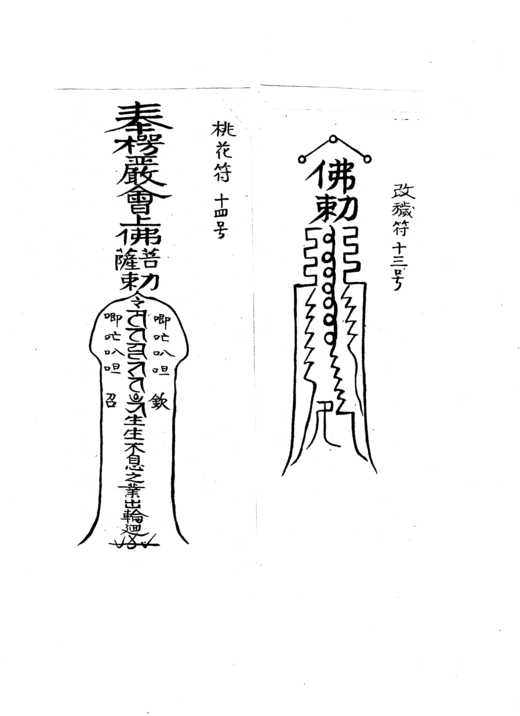 改穢符 十三号
佛勅
桃花符 十四号
奉楞嚴會上佛
菩薩
勅令
生生不息之業出輪迴
唧吣叭呾 欽
唧吣叭呾 召